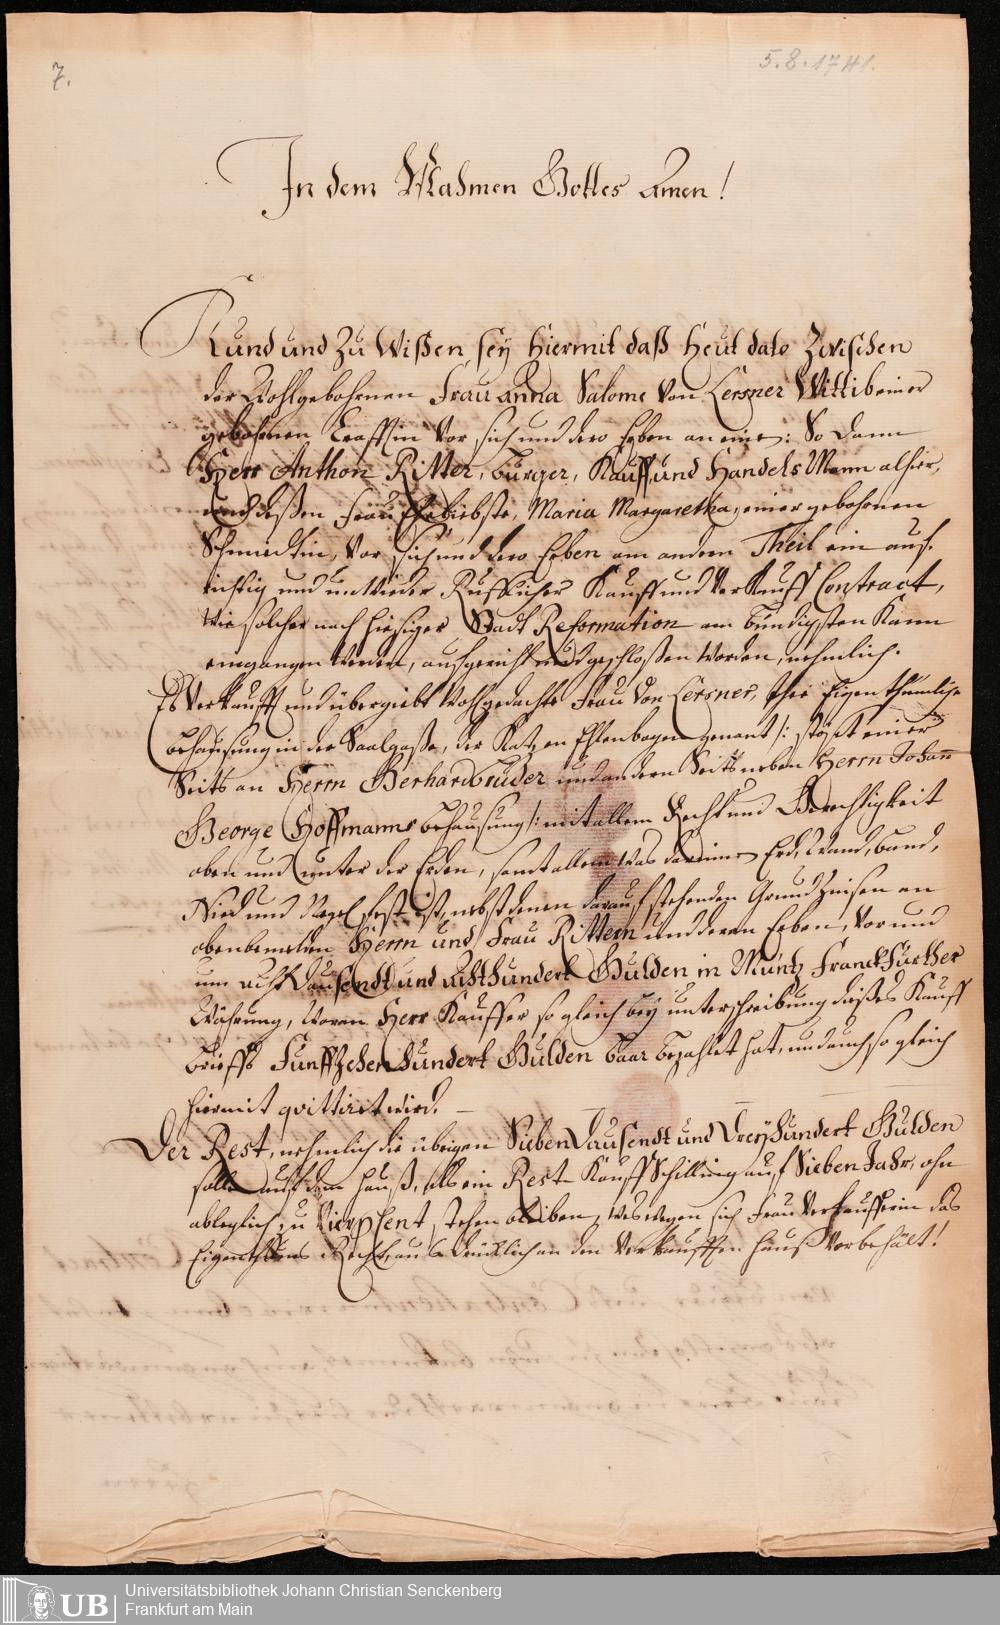 7.
5.8.1741.
In dem Nahmen Gottes Amen!
Kund und Zu Wißen sey Hiermit daß Heut dato Zwischen
der Wohlgebohrnen Frau Anna Salome Von Lersner Wittib einer
gebohrnen vor sich und dero Erben an eine: So dann
Herr Anthon Ritter, Burger, Kauff und Handels Mann alhier,
und deßen Frau Eheliebste, Maria Margaretha, einer gebohrnen
Schmidtin, Vor sich und dero Erben am andern Theil ein auf-
richtig und unwieder Rufflicher Kauff und Verkauff Contract,
wie solcher nach hiesiger Stadt Reformation am bündigsten Kann
eingangen werden, aufgericht und geschloßen worden, nehmlich.
Es Verkaufft und übergiebt Wohlgedachte Frau Von Lersner, Ihre Eigenthümliche
behaußung in der Saalgaße, der Katzen Ehlenbogen genant /: stößt einer
Seits an Herrn Gerhard Bruder und andern Seits neben Herrn Johann
George Hoffmanns behaußung :/ mit allem Recht und Gerechtigkeit
oben und unter der Erden, samt allem was darinne Erd, Wand, Band,
Nied und Nagel fest ist, nebst denen darauf stehenden Grund Zinsen an
obenbemelden Herrn und Frau Rittern und deren Erben, vor und
um acht Dausendt und achthundert Gulden in Müntz Franckfurther
Währung, woran Herr Kauffer so gleich bey unterschreibung dießes Kauff
brieffs Funffzehen hundert Gulden baar bezahlet hat, und auch so gleich
hiermit quittiret wird. —
Der Rest, nehmlich die übrigen Sieben Dausendt und Dreyhundert Gulden
solle auf dem Hauß, als ein Rest Kauff Schilling auf Sieben Jahr, ohn
ableglich zu Vier pCent stehen bleiben, weswegen sich Frau Verkaufferin das
Eigenthums Recht ausdrücklich an dem Verkaufften Hauß Vorbehält!
UB
Universitätsbibliothek Johann Christian Senckenberg
Frankfurt am Main